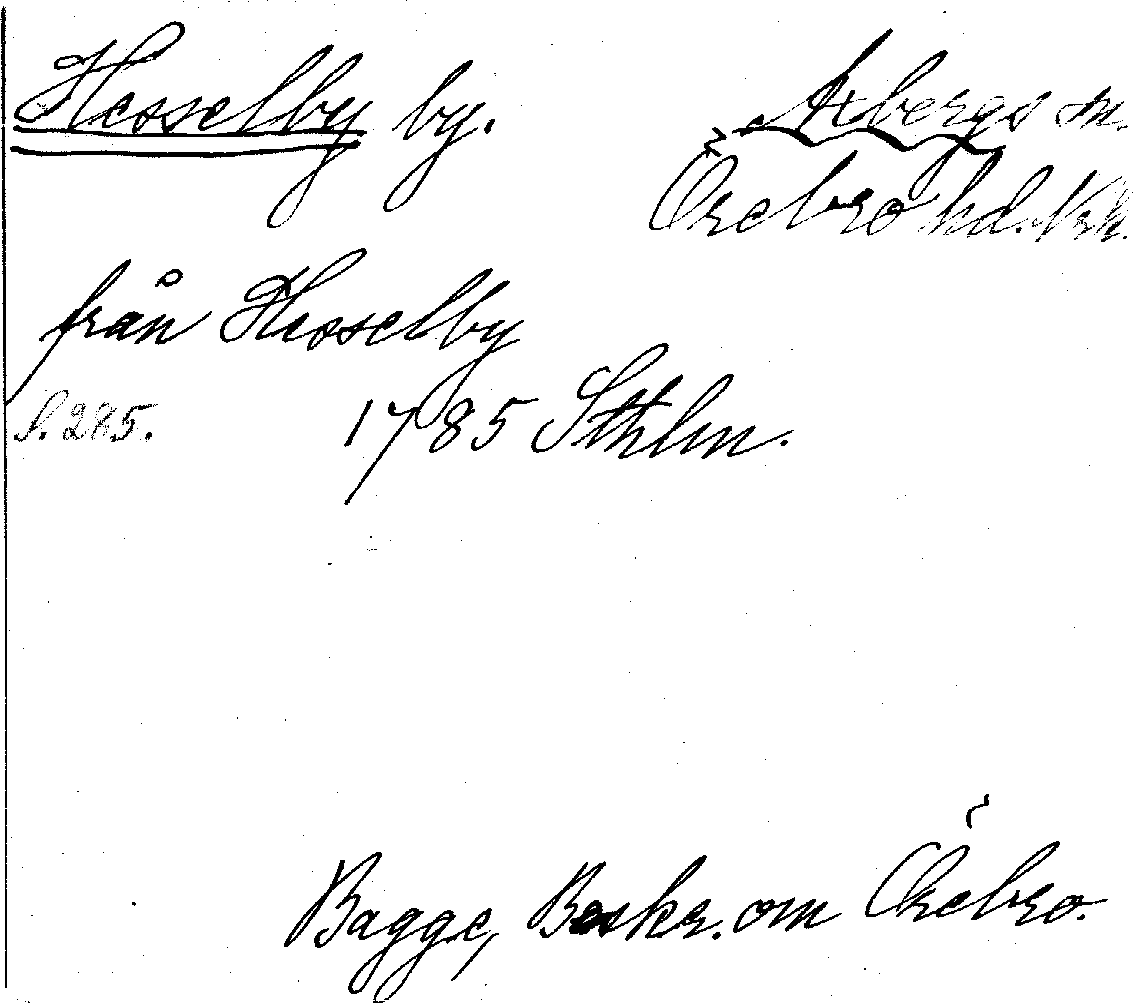 Hesselby by.
Axbergs sn.
Örebro hd. Nrk.
från Hesselby
S. 285.
1785 Sthlm.
Bagge, Beskr. om Örebro.